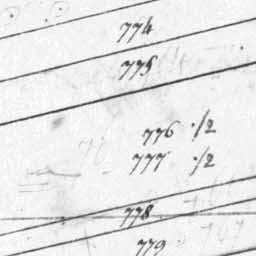 774
775
776 ·/2
777 ·/2
778
779